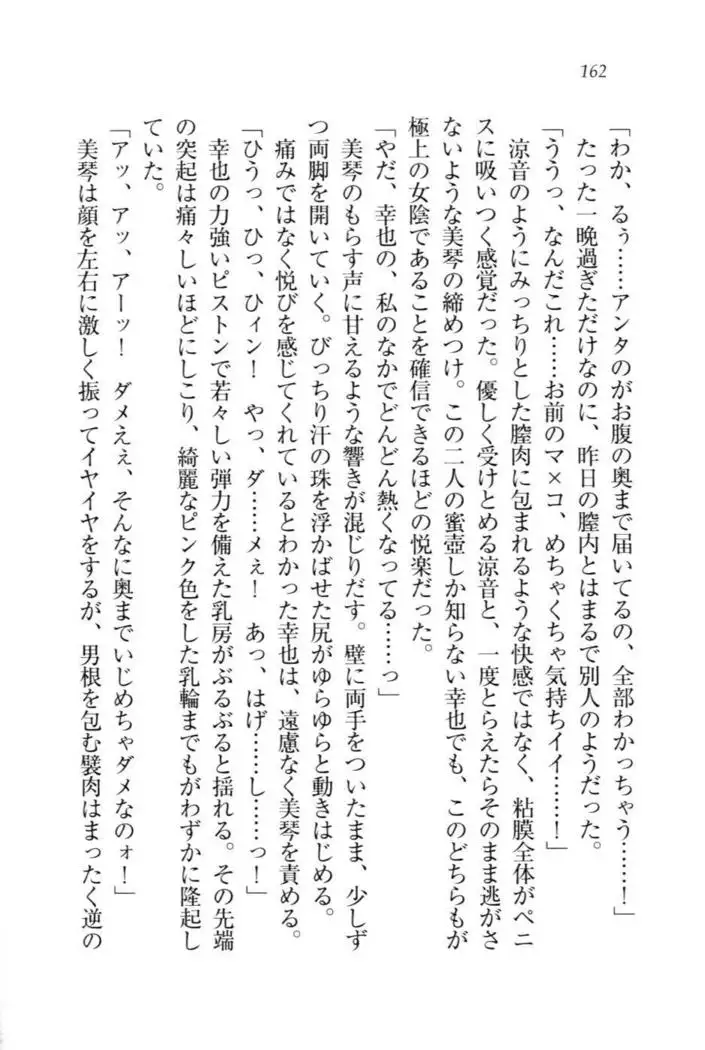 162
「わか、るぅ……アンタのがお腹の奥まで届いてるの、全部わかっちゃう……！」
たった一晩過ぎただけなのに、昨日の膣内とはまるで別人のようだった。
「ううっ、なんだこれ……お前のマ×コ、めちゃくちゃ気持ちイイ……！」
涼音のようにみっちりとした膣肉に包まれるような快感ではなく、粘膜全体がペニ
スに吸いつく感覚だった。優しく受けとめる涼音と、一度とらえたらそのまま逃がさ
ないような美琴の締めつけ。この二人の蜜壺しか知らない幸也でも、このどちらもが
極上の女陰であることを確信できるほどの悦楽だった。
「やだ、幸也の、私のなかでどんどん熱くなってる……っ」
美琴のもらす声に甘えるような響きが混じりだす。壁に両手をついたまま、少しず
つ両脚を開いていく。びっちり汗の珠を浮かばせた尻がゆらゆらと動きはじめる。
痛みではなく悦びを感じてくれているとわかった幸也は、遠慮なく美琴を責める。
「ひうっ、ひっ、ひィン！　やっ、ダ……メぇ！　あっ、はげ……し……っ！」
幸也の力強いピストンで若々しい弾力を備えた乳房がぶるぶると揺れる。その先端
の突起は痛々しいほどにしこり、綺麗なピンク色をした乳輪までもがわずかに隆起し
ていた。
「アッ、アッ、アーッ！　ダメえぇ、そんなに奥までいじめちゃダメなのォ！」
美琴は顔を左右に激しく振ってイヤイヤをするが、男根を包む襞肉はまったく逆の